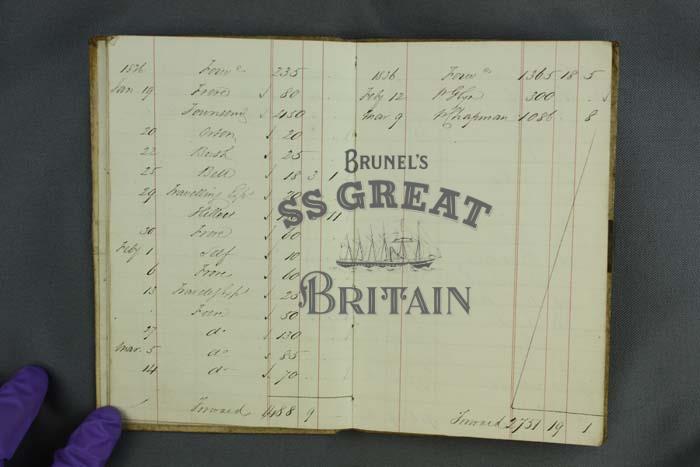 1836 Forwd 235
Jan. 19 Frere 80
Townsend 450
20 20
22 Bush 25
25 Bell 18 3 1
29 Travelling Exps
11
30 Frere 60
Feby 1 Self 10
6 Frere 60
13 Travelg Exps 25
50
27 do 130
Mar. 5 do 85
14 do 70
Forward 1488 9
1836 Forwd 1365 18 5
Feby 12 W Glyn 300
Mar 9 W Chapman 1086 8
Forward 2751 19 1
BRUNEL'S
SS GREAT
BRITAIN